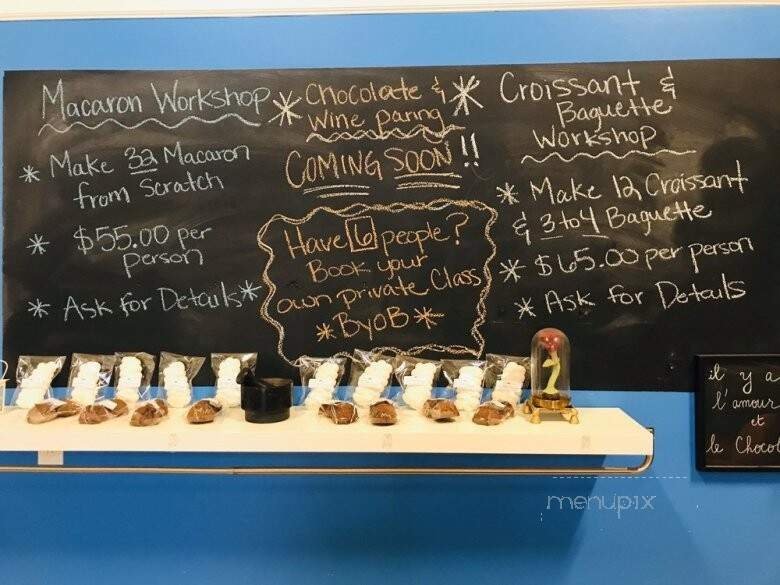 Macaron Workshop
* Make 32 Macaron
from Scratch
* $55.00 per
person
* Ask for Details *
* Chocolate & *
Wine Paring
COMING SOON!!
Have 6 people?
Book your
own private Class
* BYOB *
Croissant &
Baguette
Workshop
* Make 12 Croissant
& 3 to 4 Baguette
* $65.00 per person
* Ask for Details
il y a
l'amour
et
le Chocol
menupix